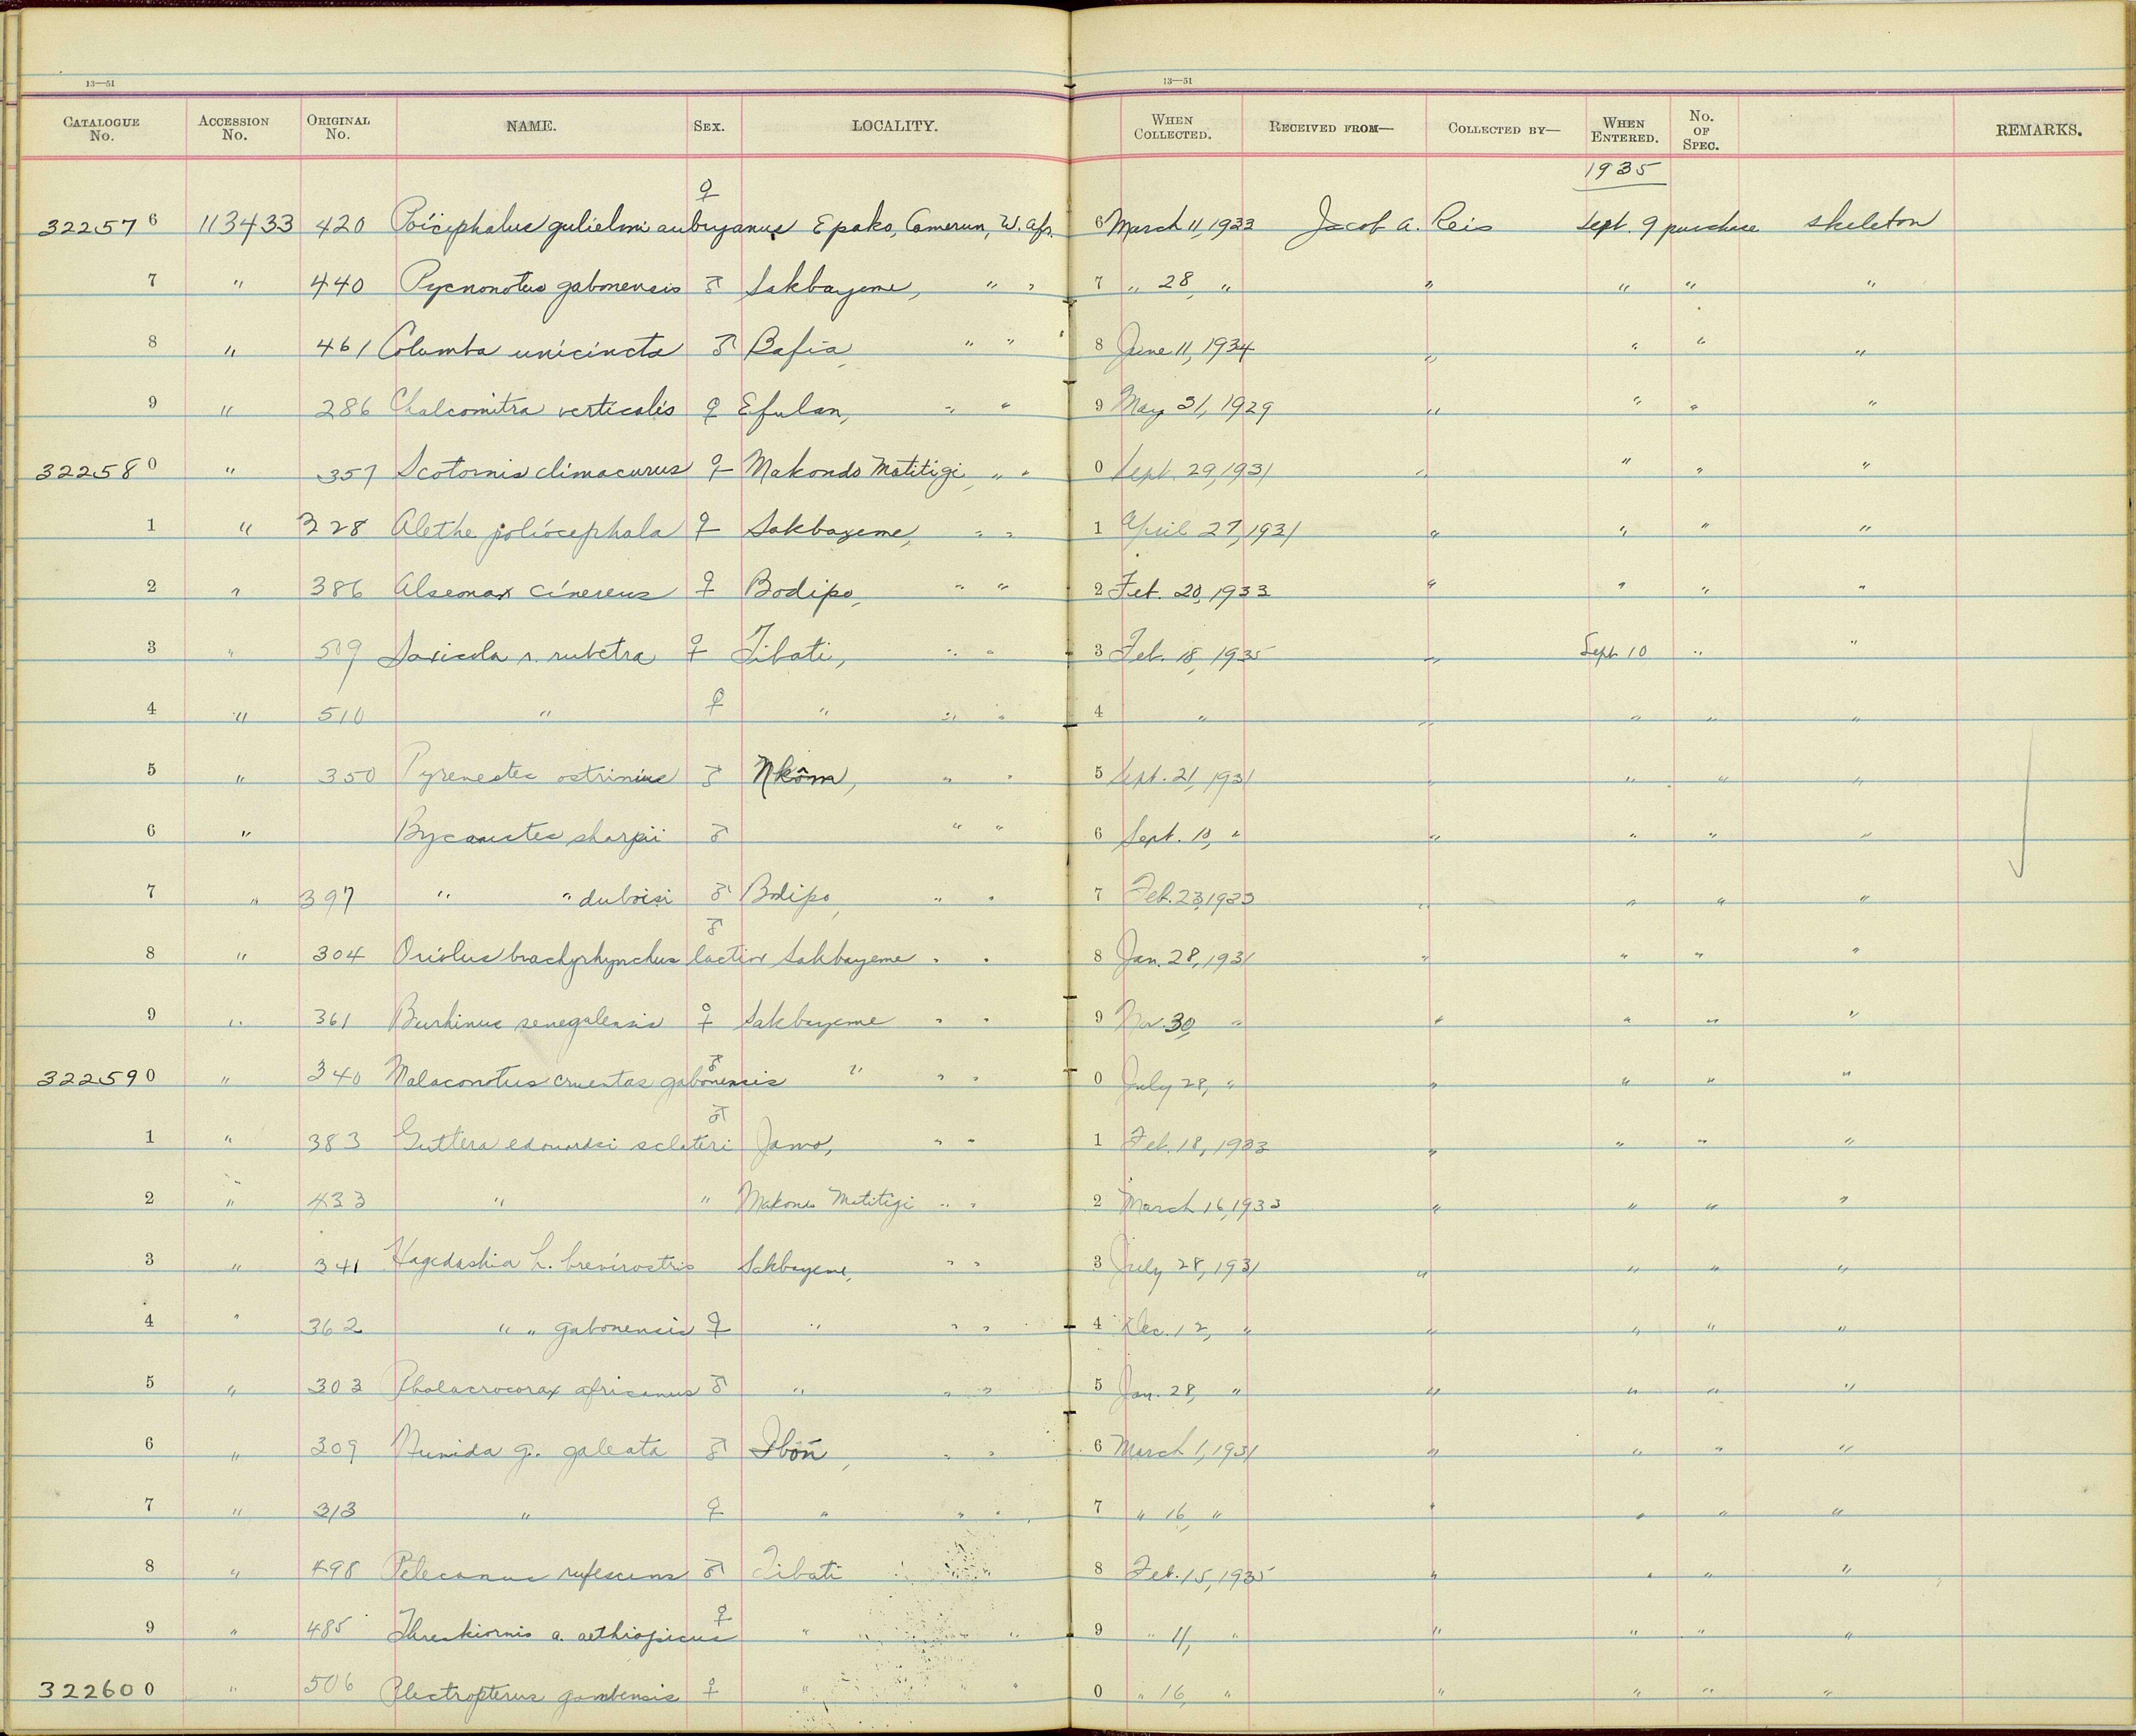 13—51 13—51
CATALOGUE No. ACCESSION No. ORIGINAL No. NAME. SEX. LOCALITY. WHEN COLLECTED. RECEIVED FROM— COLLECTED BY— WHEN ENTERED. No. OF SPEC. REMARKS.
1935
322576 113433 420 Poicephalus gulielmi aubryanus ♀ Epako, Camerun, W. Afr. 6 March 11, 1933 Jacob A. Reis Sept. 9 purchase skeleton
7 " 440 Pycnonotus gabonensis ♂ Sakbayeme, " " 7 " 28, " " " " "
8 " 461 Columba unicincta ♂ Bafia, " " 8 June 11, 1934 " " " "
9 " 286 Chalcomitra verticalis ♀ Efulan, " " 9 May 31, 1929 " " " "
322580 " 357 Scotornis climacurus ♀ Makondo Matitigi, " " 0 Sept. 29, 1931 " " " "
1 " 328 Alethe poliocephala ♀ Sakbayeme, " " 1 April 27, 1931 " " " "
2 " 386 Alseonax cinereus ♀ Bodipo, " " 2 Feb. 20, 1933 " " " "
3 " 509 Saxicola r. rubetra ♀ Tibati, " " 3 Feb. 18, 1935 " Sept. 10 " "
4 " 510 " ♀ " " " 4 " " " " "
5 " 350 Pyrenestes ostrinus ♂ Nkôm, " " 5 Sept. 21, 1931 " " " "
6 " Bycanistes sharpii ♂ " " 6 Sept. 10, " " " " "
7 " 397 " " duboisi ♂ Bodipo, " " 7 Feb. 23, 1933 " " " "
8 " 304 Oriolus brachyrhynchus laetior ♂ Sakbayeme " " 8 Jan. 28, 1931 " " " "
9 " 361 Burhinus senegalensis ♀ Sakbayeme " " 9 Nov. 30, " " " " "
322590 " 340 Malaconotus cruentas gabonensis ♂ " " " 0 July 28, " " " " "
1 " 383 Guttera edouardi sclateri ♂ Jamo, " " 1 Feb. 18, 1933 " " " "
2 " 433 " " Makondo Matitigi " " 2 March 16, 1933 " " " "
3 " 341 Hagedashia h. brevirostris Sakbayeme, " " 3 July 28, 1931 " " " "
4 " 362 " " gabonensis ♀ " " " 4 Dec. 12, " " " " "
5 " 303 Phalacrocorax africanus ♂ " " " 5 Jan. 28, " " " " "
6 " 309 Numida g. galeata ♂ Ibôñ, " " 6 March 1, 1931 " " " "
7 " 313 " ♀ " " " 7 " 16, " " " " "
8 " 498 Pelecanus rufescens ♂ Tibati " 8 Feb. 15, 1935 " " " "
9 " 485 Threskiornis a. aethiopicus ♀ " " " 9 " 11, " " " " "
322600 " 506 Plectropterus gambensis ♀ " " 0 " 16, " " " " "